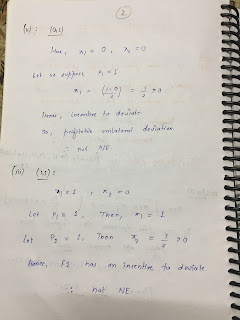 2
(ii) : (0,1)
Here, π₁ = 0 , π₂ = 0
Let us suppose x₁ = 1
π₁ = (1-0 / 2) = 1/2 > 0
Hence, incentive to deviate.
So, profitable unilateral deviation.
∴ not NE.
(iii) (1,1) :
π₁ = 1 , π₂ = 0
Let P₁ = 1, Then, π₁ = 1
Let P₂ = 1, Then π₂ = 1/2 > 0
Hence, F2 has an incentive to deviate
∴ not NE